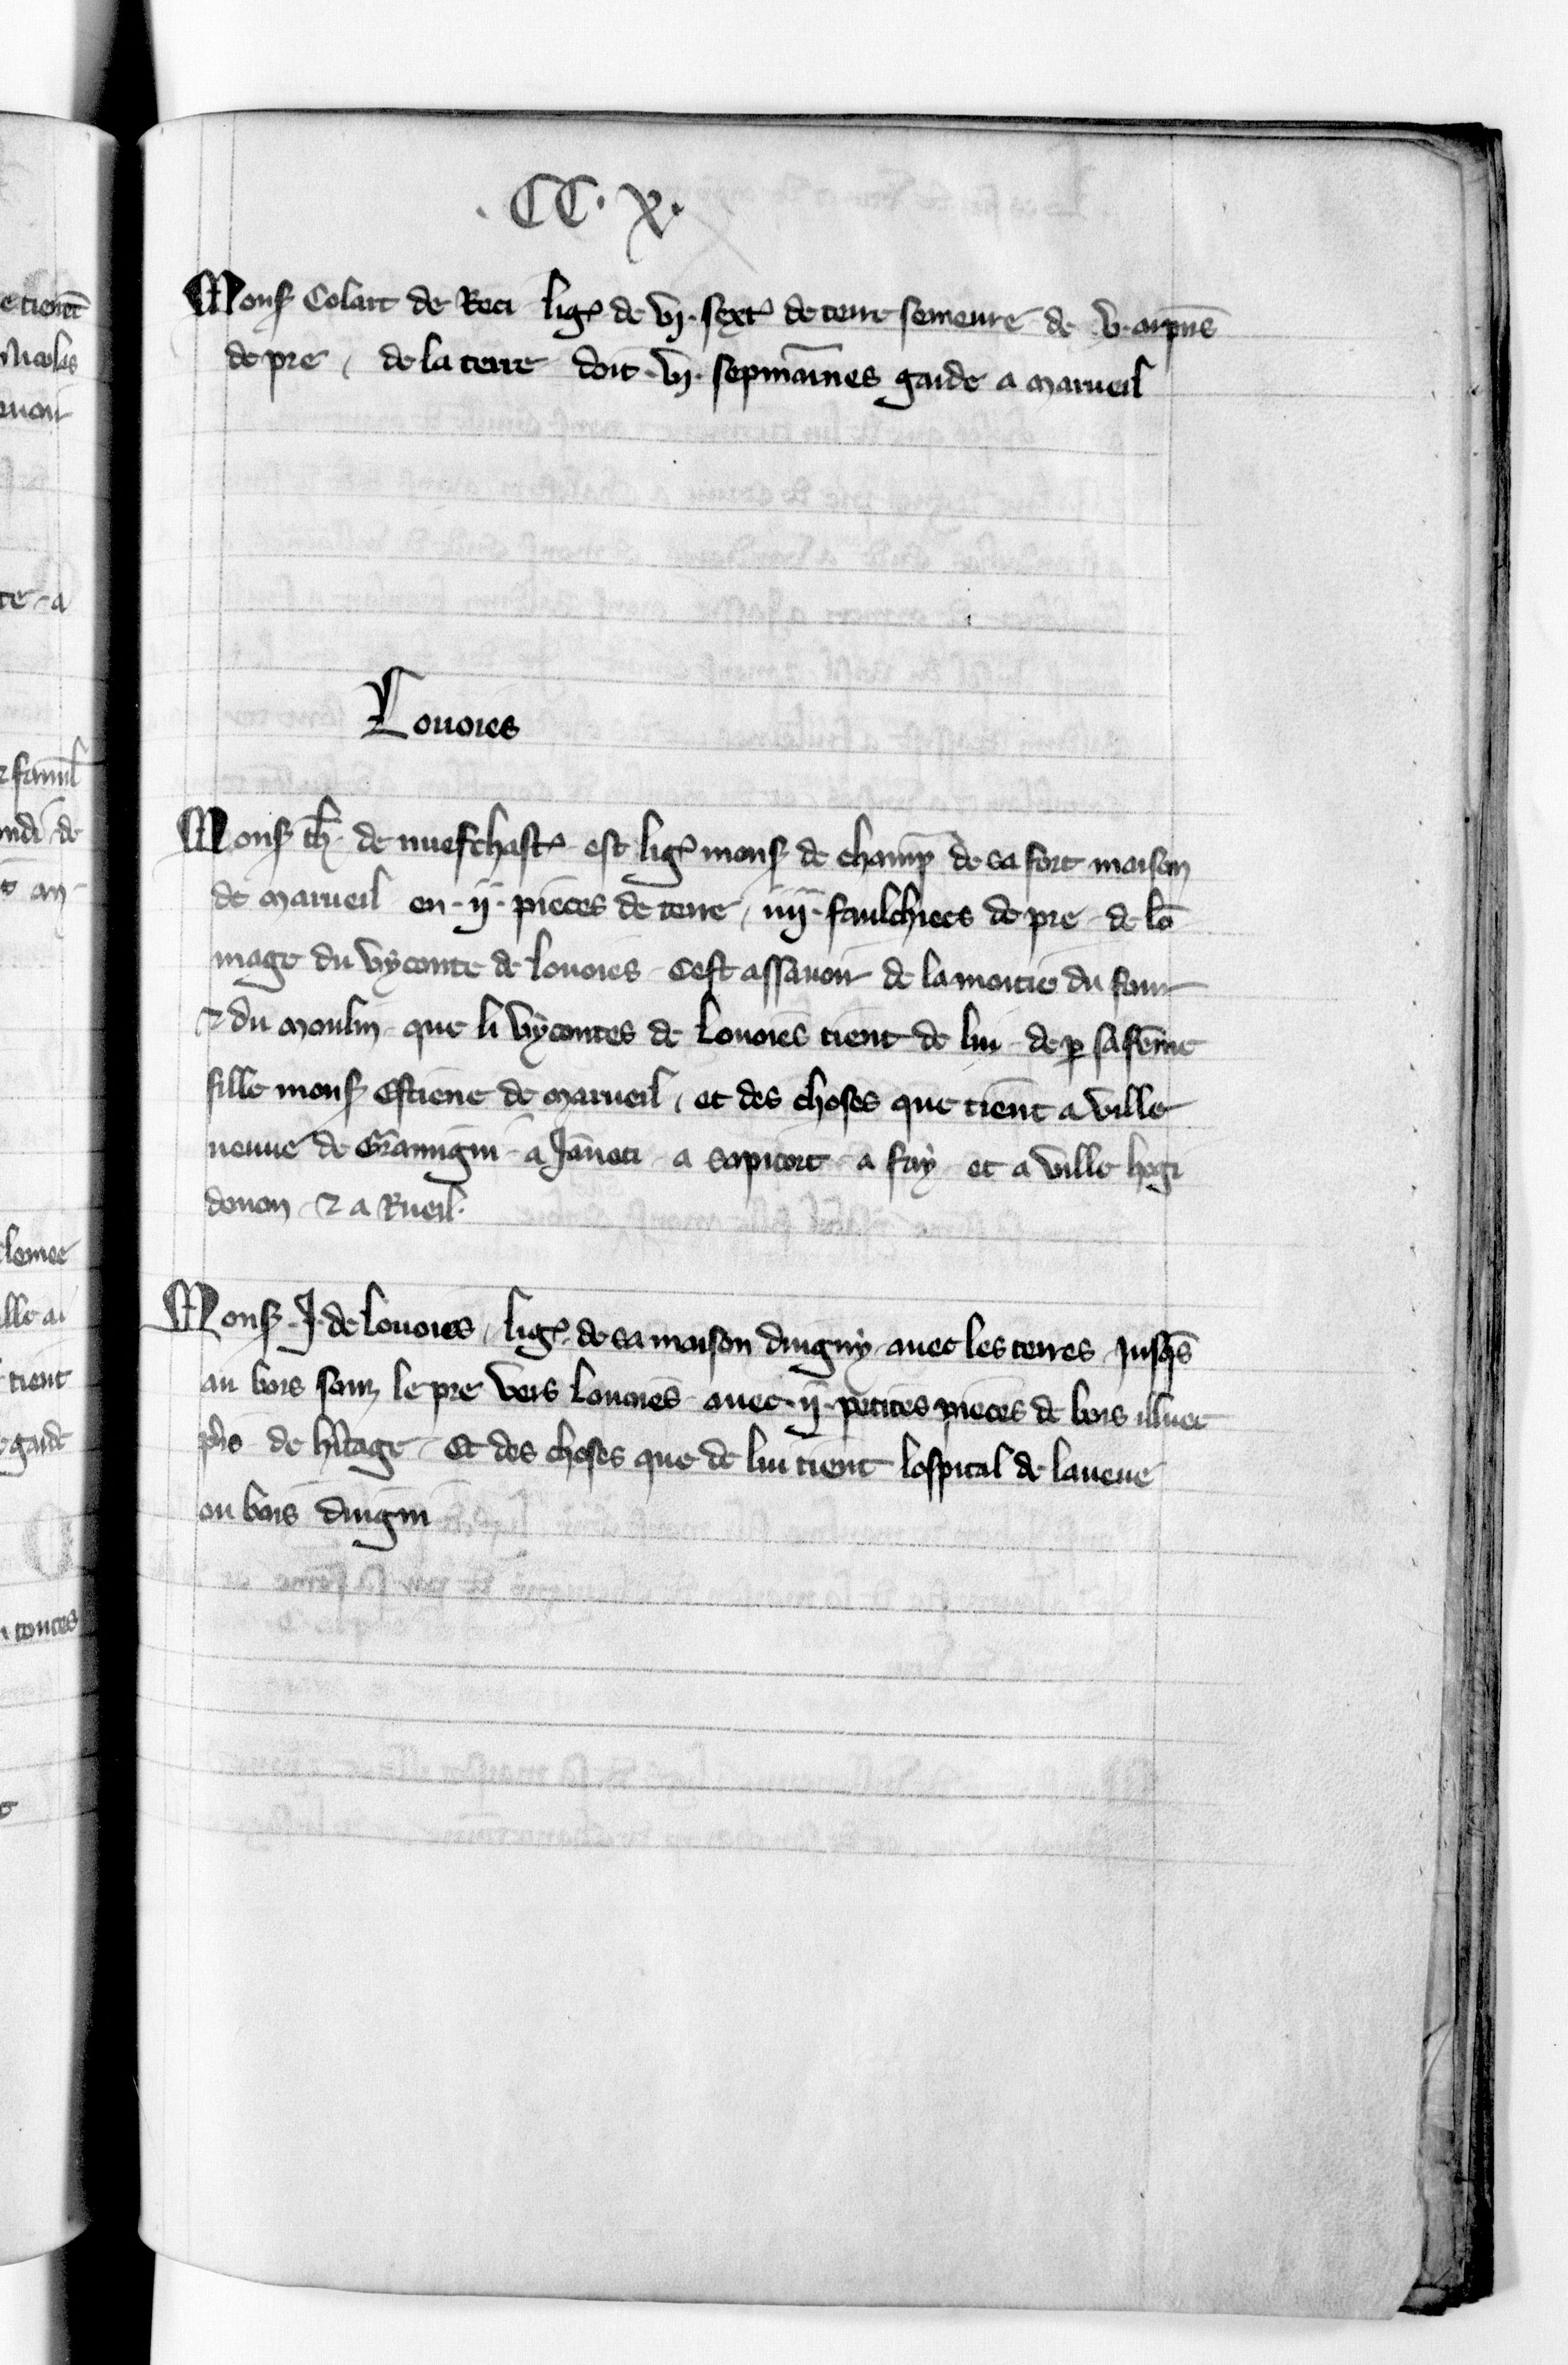 .CC.X.
Monsʳ Colart de Reci ligᵉ de vj. sextᵉ de terre semeure de v. arpēs
de pre / de la terre doit .vj. sepmāines garde a Marueil
Louoies
Monsʳ th̄. de nuefchastᵉ est ligᵉ monsʳ de champ̄ de sa fort maison
de Marueil en .ij. pieces de terre / iiij. faulchiees de pre de lō
mage du vyconte de Louoies Cest assauoir de la moitie du four
⁊ du Moulin que li vycontes de Louoies tient de lui de ꝑ sa fēme
fille monsʳ Estiene de Marueil / et des choses que tient a ville
neuue de Gramigni a Janeti a Sapicort a fay et a ville hegi
douon ⁊ a Rueil.
Monsʳ J. de Louoies / ligᵉ de sa maison dingny auec les terres Jusqs̄
au bois souz le pre vers Louoies auec .ij. petites pieces de bois illuec
pr̄s de hr̄itage Et des choses que de lui tient lospital de laueue
ou bois dingni
e tienēt
Nicoles
te a
⁊ famil
an
tient
garde